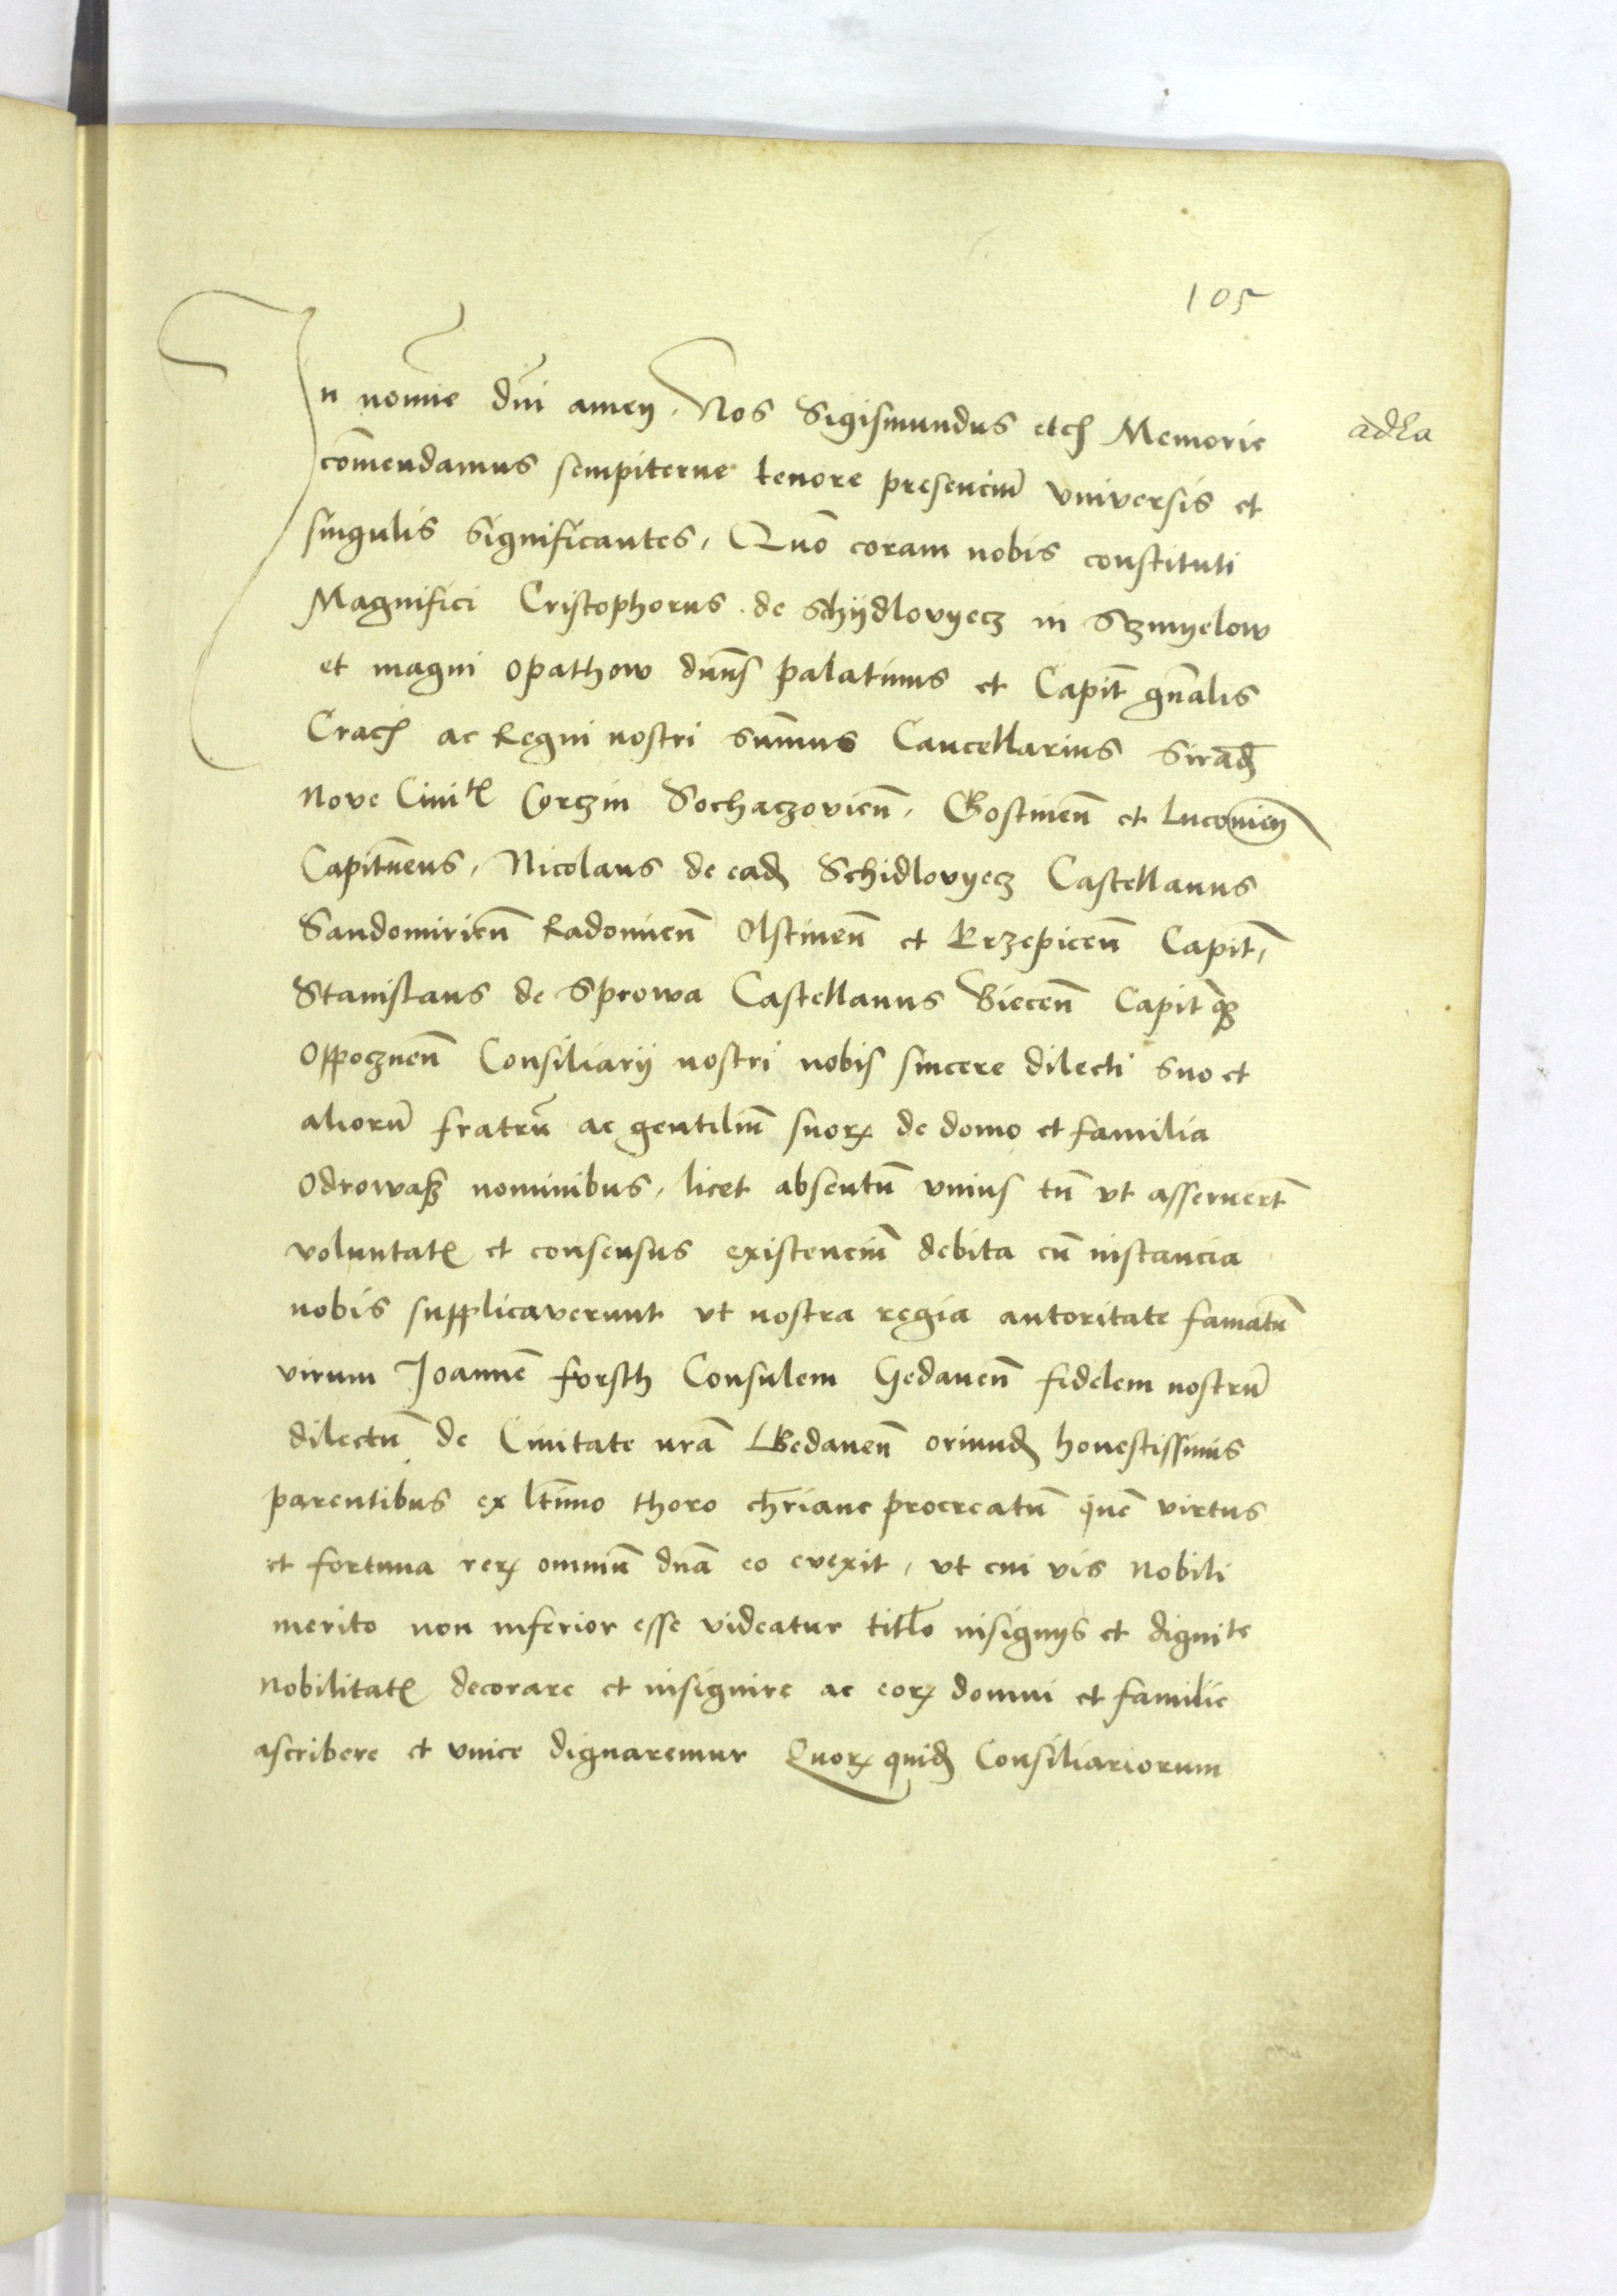 105
In nomie dni amen. Nos Sigismundus etc Memorie
adla
comendamus sempiterne tenore presenciu universis et
singulis significantes, Quo coram nobis constituti
Magnifici Cristophorus de Schydlovyecz in Szmyelow
et magni Opathow duns palatinus et Capit gnalis
Crac ac Regni nostri summus Cancellarius Sirad
Nove Civit Corczin Sochaczovien, Gostinen et
Capituens, Nicolaus de ead Schidlovyecz Castellanus
Sandomirien Radomien Olstinen et Krzepicen Capit,
Stanislaus de Sprowa Castellanus Biecen Capitq
Oppocznen Consiliarii nostri nobis sincere dilecti suo et
alioru fratru ac gentiliu suor de domo et familia
Odrowasz nominibus, licet absentu unius tn ut asseruert
voluntat et consensus existenciu debita cu instancia
nobis supplicaverunt ut nostra regia autoritate famatu
virum Joanne forsth Consulem Gedanen fidelem nostru
dilectu de Civitate nra Gedanen oriund honestissimis
parentibus ex ltimo thoro christiane procreatu que virtus
et fortuna rer omniu dna eo evexit, ut cui vis nobili
merito non inferior esse videatur titlo insignys et dignite
nobilitat decorare et insignire ac eor domui et familie
ascribere et unire dignaremur Quor quid Consiliariorum